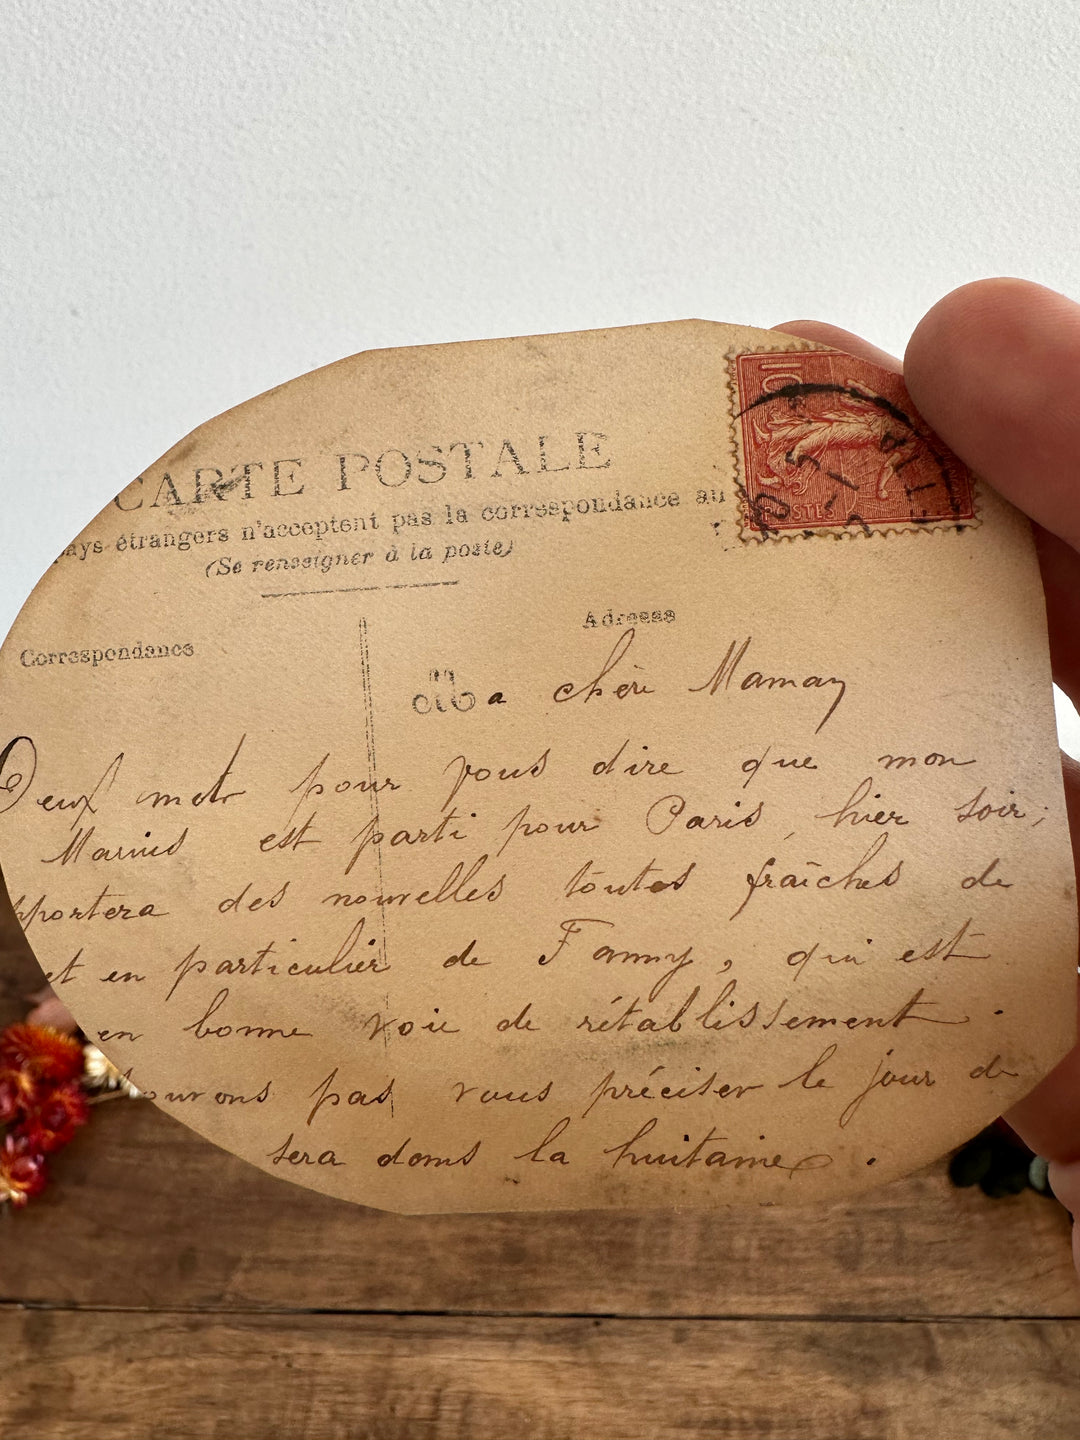 CARTE POSTALE
pays étrangers n'acceptent pas la correspondance au
(Se renseigner à la poste)
10
POSTES
Correspondance
Adresse
Ma chère Maman
Deux mots pour vous dire que mon
Marius est parti pour Paris, hier soir;
pportera des nouvelles toutes fraîches de
et en particulier de Fanny, qui est
en bonne voie de rétablissement.
pouvons pas vous préciser le jour de
sera dans la huitaine.